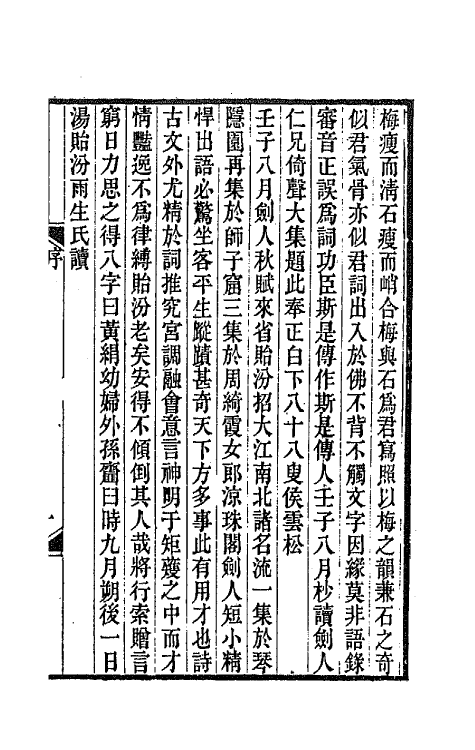 梅瘦而清石瘦而峭合梅與石爲君寫照以梅之韻兼石之奇
似君氣骨亦似君詞出入於佛不背不觸文字因緣莫非語錄
審音正誤爲詞功臣斯是傳作斯是傳人壬子八月杪讀劍人
仁兄倚聲大集題此奉正白下八十八叟侯雲松
壬子八月劍人秋賦來省貽汾招大江南北諸名流一集於琴
隱園再集於師子窟三集於周綺霞女郎涼珠閣劍人短小精
悍出語必驚坐客平生蹤蹟甚奇天下方多事此有用才也詩
古文外尤精於詞推究宮調融會意言神明于矩矱之中而才
情豔逸不爲律縛貽汾老矣安得不傾倒其人哉將行索贈言
窮日力思之得八字曰黃絹幼婦外孫齏臼時九月朔後一日
湯貽汾雨生氏讀
序
一